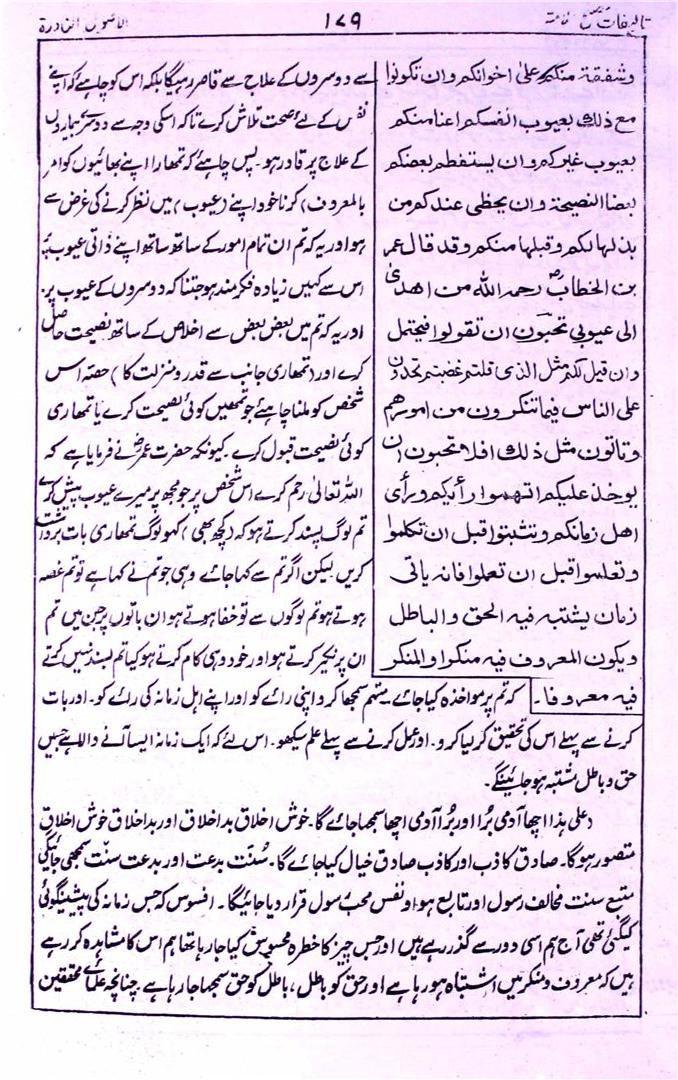 تالیفات مصلح الامتہ
۱۷۹
الاصول النادرۃ
وشفقة منكم على اخوانكم وان تكونوا
مع ذلك بعيوب انفسكم اعنا منكم
بعيوب غيركم وان يستفطم بعضكم
بعضا النصيحة وان يحظى عندكم من
بذلها لكم وقبلها منكم وقد قال عمر
بن الخطابؓ رحمه الله من اهدى
الى عيوبي تحبون ان تقولوا فيحتمل
وان قيل لكم مثل الذي قلتم غضبتم تجدون
على الناس فيما تنكرون من امورهم
وتاتون مثل ذلك افلا تحبون ان
يوخذ عليكم اتهموا رأيكم ورأى
اهل زمانكم وتثبتوا قبل ان تكلموا
وتعلموا قبل ان تعملوا فانه ياتى
زمان يشتبه فيه الحق والباطل
ويكون المعروف فيه منكرا والمنكر
فيه معروفا۔
سے دوسروں کے علاج سے قاصر رہیگا بلکہ اس کو چاہئے کہ اپنے
نفس کے لئے صحت تلاش کرے تاکہ اسکی وجہ سے دوسرے بیماروں
کے علاج پر قادر ہو۔ پس چاہئے کہ تمھارا اپنے بھائیوں کو امر
بالمعروف کرنا خود اپنے (عیوب) میں نظر کرنے کی غرض سے
ہو اور یہ کہ تم ان تمام امور کے ساتھ ساتھ اپنے ذاتی عیوب پر
اس سے کہیں زیادہ فکر مند ہو جتنا کہ دوسروں کے عیوب پر۔
اور یہ کہ تم میں بعض بعض سے اخلاص کے ساتھ نصیحت حاصل
کرے اور (تمھاری جانب سے قدر و منزلت کا) حصّہ اس
شخص کو ملنا چاہئے جو تمھیں کوئی نصیحت کرے یا تمھاری
کوئی نصیحت قبول کرے۔ کیونکہ حضرت عمرؓ نے فرمایا ہے کہ
اللہ تعالیٰ رحم کرے اس شخص پر جو مجھ پر میرے عیوب پیش کرے
تم لوگ پسند کرتے ہو کہ (کچھ بھی) کہو لوگ تمھاری بات برداشت
کریں لیکن اگر تم سے کہا جائے وہی جو تم نے کہا ہے تو تم غصہ
ہوتے ہو تم لوگوں سے تو خفا ہوتے ہو ان باتوں پر جن میں تم
ان پر نکیر کرتے ہو اور خود وہی کام کرتے ہو کیا تم پسند نہیں کرتے
کہ تم پر مواخذہ کیا جائے متہم سمجھا کرو اپنی رائے کو اور اپنے اہل زمانہ کی رائے کو۔ اور بات
کرنے سے پہلے اس کی تحقیق کر لیا کرو۔ اور عمل کرنے سے پہلے علم سیکھو۔ اس لئے کہ ایک زمانہ ایسا آنے والا ہے جسمیں
حق و باطل مشتبہ ہو جائینگے۔
(علی ہذا اچھا آدمی بُرا اور بُرا آدمی اچھا سمجھا جائے گا۔ خوش اخلاق بد اخلاق اور بد اخلاق خوش اخلاق
متصور ہوگا۔ صادق کاذب اور کاذب صادق خیال کیا جائے گا۔ سُنّت بدعت اور بدعت سنّت سمجھی جائیگی
متبع سنت مخالف رسول اور تابع ہوا و نفس محبِ رسول قرار دیا جائیگا۔ افسوس کہ جس زمانہ کی پیشینگوئی
کیگئی تھی آج ہم اسی دور سے گذر رہے ہیں اور جس چیز کا خطرہ محسوس کیا جا رہا تھا ہم اس کا مشاہدہ کر رہے
ہیں کہ معروف و منکر میں اشتباہ ہو رہا ہے اور حق کو باطل، باطل کو حق سمجھا جا رہا ہے چنانچہ علمائے محققین